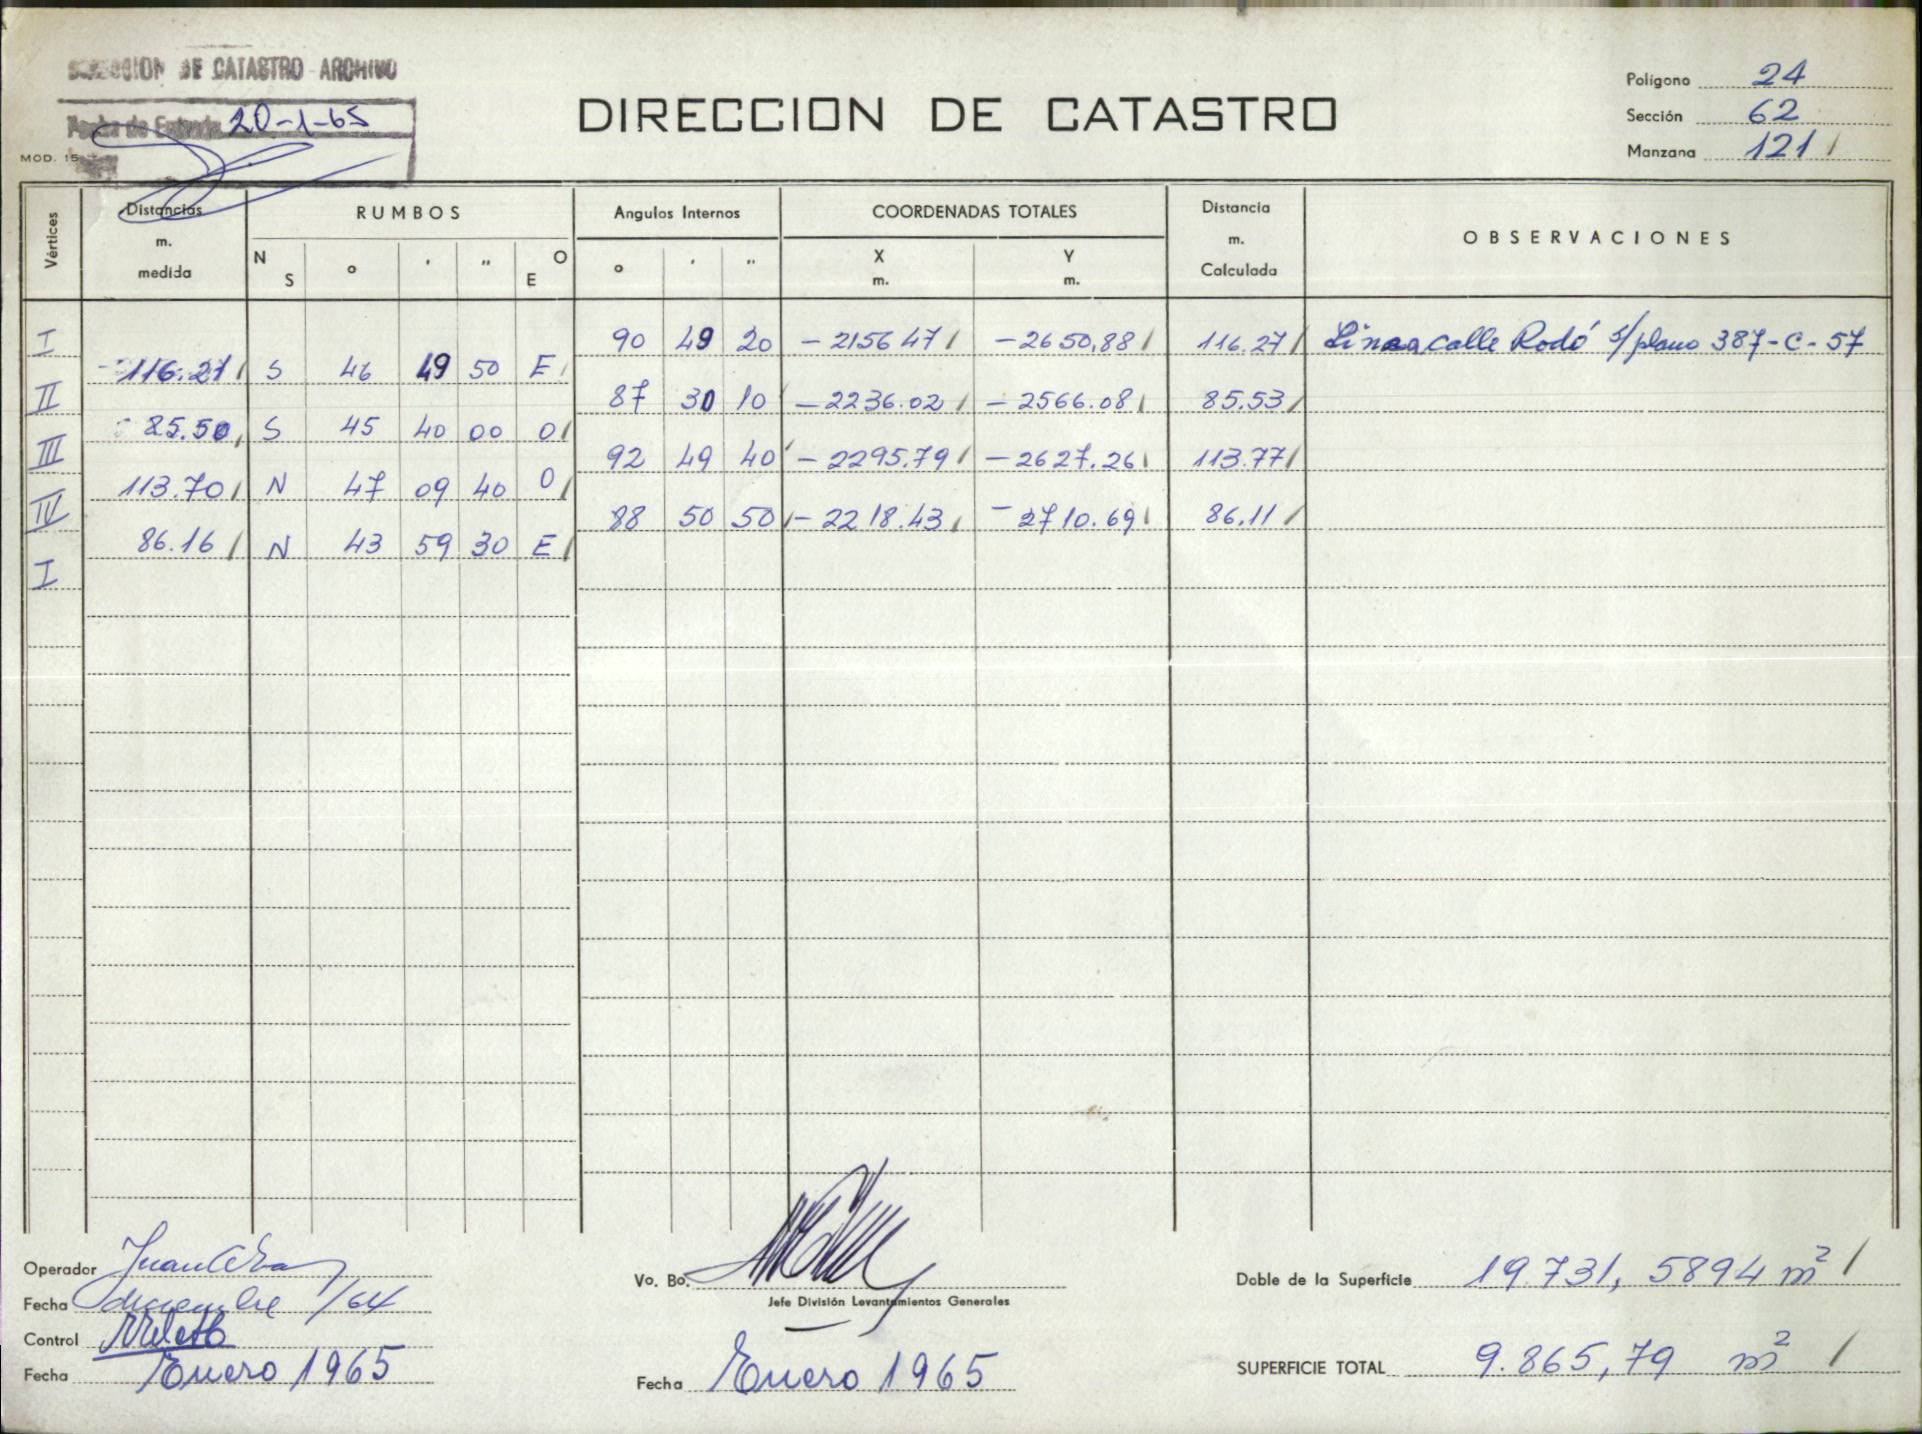 DIRECCION DE CATASTRO ARCHIVO
Fecha de Entrada 20-1-65
MOD. 15
DIRECCION DE CATASTRO
Polígono 24
Sección 62
Manzana 121
Vértices
Distancias m. medida
RUMBOS
N S ° ' " O E
Angulos Internos
° ' "
COORDENADAS TOTALES
X m. Y m.
Distancia m. Calculada
OBSERVACIONES
I 90 49 20 -2156 47 -2650,88 116.27 Linea calle Rodó s/plano 387-C-57
116.27 S 46 49 50 E
II 87 30 10 -2236.02 -2566.08 85.53
85.50 S 45 40 00 O
III 92 49 40 -2295.79 -2627.26 113.77
113.70 N 47 09 40 O
IV 88 50 50 -2218.43 -2710.69 86.11
86.16 N 43 59 30 E
I
Operador Juan
Fecha diciembre 1/64
Control
Fecha Enero 1965
Vo. Bo.
Jefe División Levantamientos Generales
Fecha Enero 1965
Doble de la Superficie 19.731,5894 m²
SUPERFICIE TOTAL 9.865,79 m²